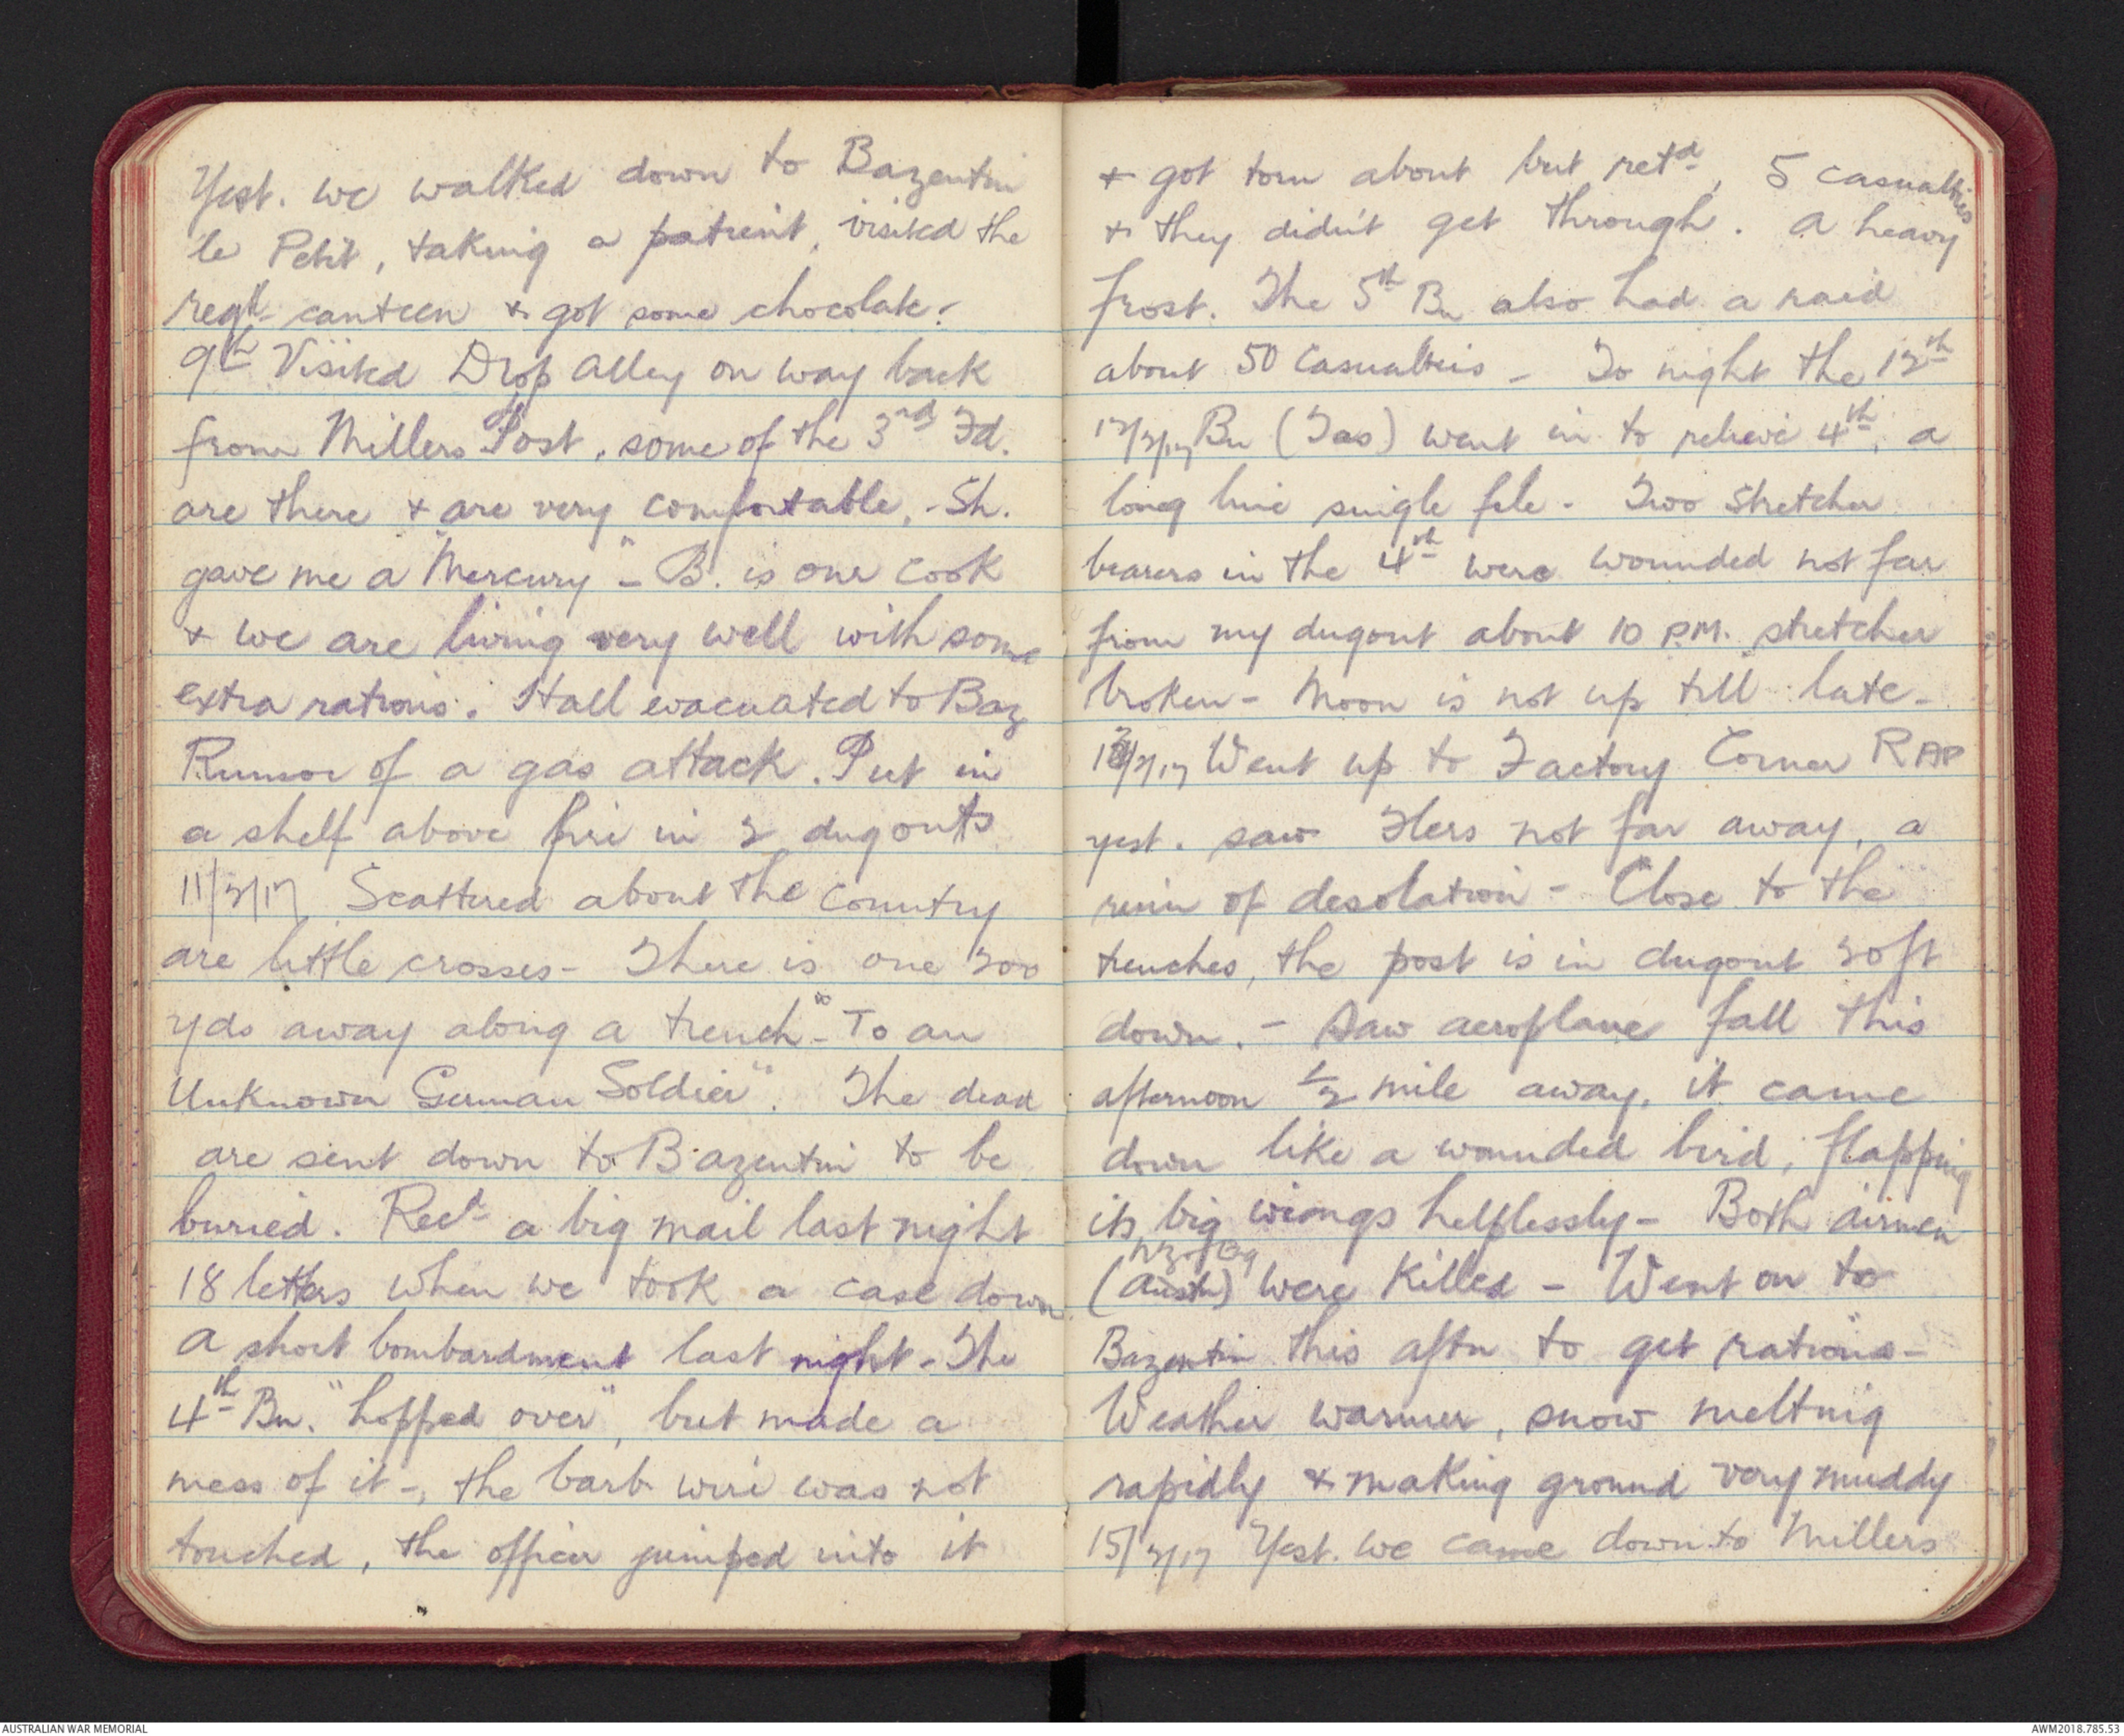 Yest. we walked down to Bazentin
le Petit, taking a patient, visited the
regtl canteen & got some chocolate.
9th Visited Drop Alley on way back
from Millers Post, some of the 3rd Fd.
are there & are very comfortable, - Sh.
gave me a "Mercury" - B. is our cook
& we are living very well with some
extra rations. Hall evacuated to Baz
Rumor of a gas attack. Put in
a shelf above fire in 2 dugouts
11/2/17 Scattered about the country
are little crosses - There is one 200
yds away along a trench - "To an
Unknown German Soldier". The dead
are sent down to Bazentin to be
buried. Recd a big mail last night
18 letters when we took a case down
A short bombardment last night - The
4th Bn. "hopped over", but made a
mess of it -, the barb wire was not
touched, the officer jumped into it
& got torn about but retd, 5 casualties
& they didn't get through. A heavy
frost. The 5th Bn also had a raid
about 50 casualties - To night the 12th
12/2/17 Bn (Tas) went in to relieve 4th, a
long line single file - Two stretcher
bearers in the 4th were wounded not far
from my dugout about 10 P.M. stretcher
broken - Moon is not up till late -
13/2/17 Went up to Factory Corner RAP
yest. saw Flers not far away, a
ruin of desolation - Close to the
trenches, the post is in dugout 20 ft
down. - Saw aeroplane fall this
afternoon ½ mile away, it came
down like a wounded bird, flapping
its big wings helplessly - Both airmen
(Austn) were killed - Went on to
Bazentin this aftn to get rations -
Weather warmer, snow melting
rapidly & making ground very muddy
15/2/17 Yest. we came down to Millers
AUSTRALIAN WAR MEMORIAL
AWM2018.785.53